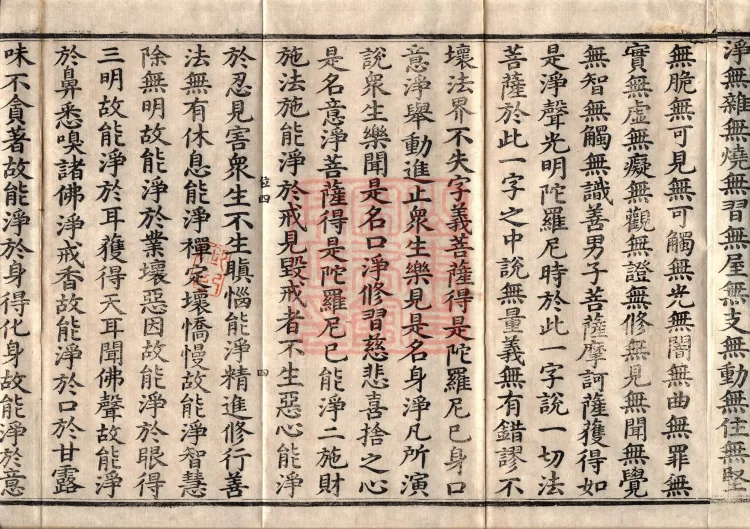 淨無雜無燒無習無屋無支無動無住無堅
無脆無可見無可觸無光無闇無曲無罪無
實無虛無癡無觀無證無修無見無聞無覺
無智無觸無識善男子菩薩摩訶薩獲得如
是淨聲光明陀羅尼時於此一字說一切法
菩薩於此一字之中說無量義無有錯謬不
壞法界不失字義菩薩得是陀羅尼已身口
意淨舉動進止衆生樂見是名身淨凡所演
說衆生樂聞是名口淨修習慈悲喜捨之心
是名意淨菩薩得是陀羅尼已能淨二施財
施法施能淨於戒見毀戒者不生惡心能淨
位四 四
於忍見害衆生不生瞋惱能淨精進修行善
法無有休息能淨禪定壞憍慢故能淨智慧
除無明故能淨於業壞惡因故能淨於眼得
三明故能淨於耳獲得天耳聞佛聲故能淨
於鼻悉嗅諸佛淨戒香故能淨於口於甘露
味不貪著故能淨於身得化身故能淨於意